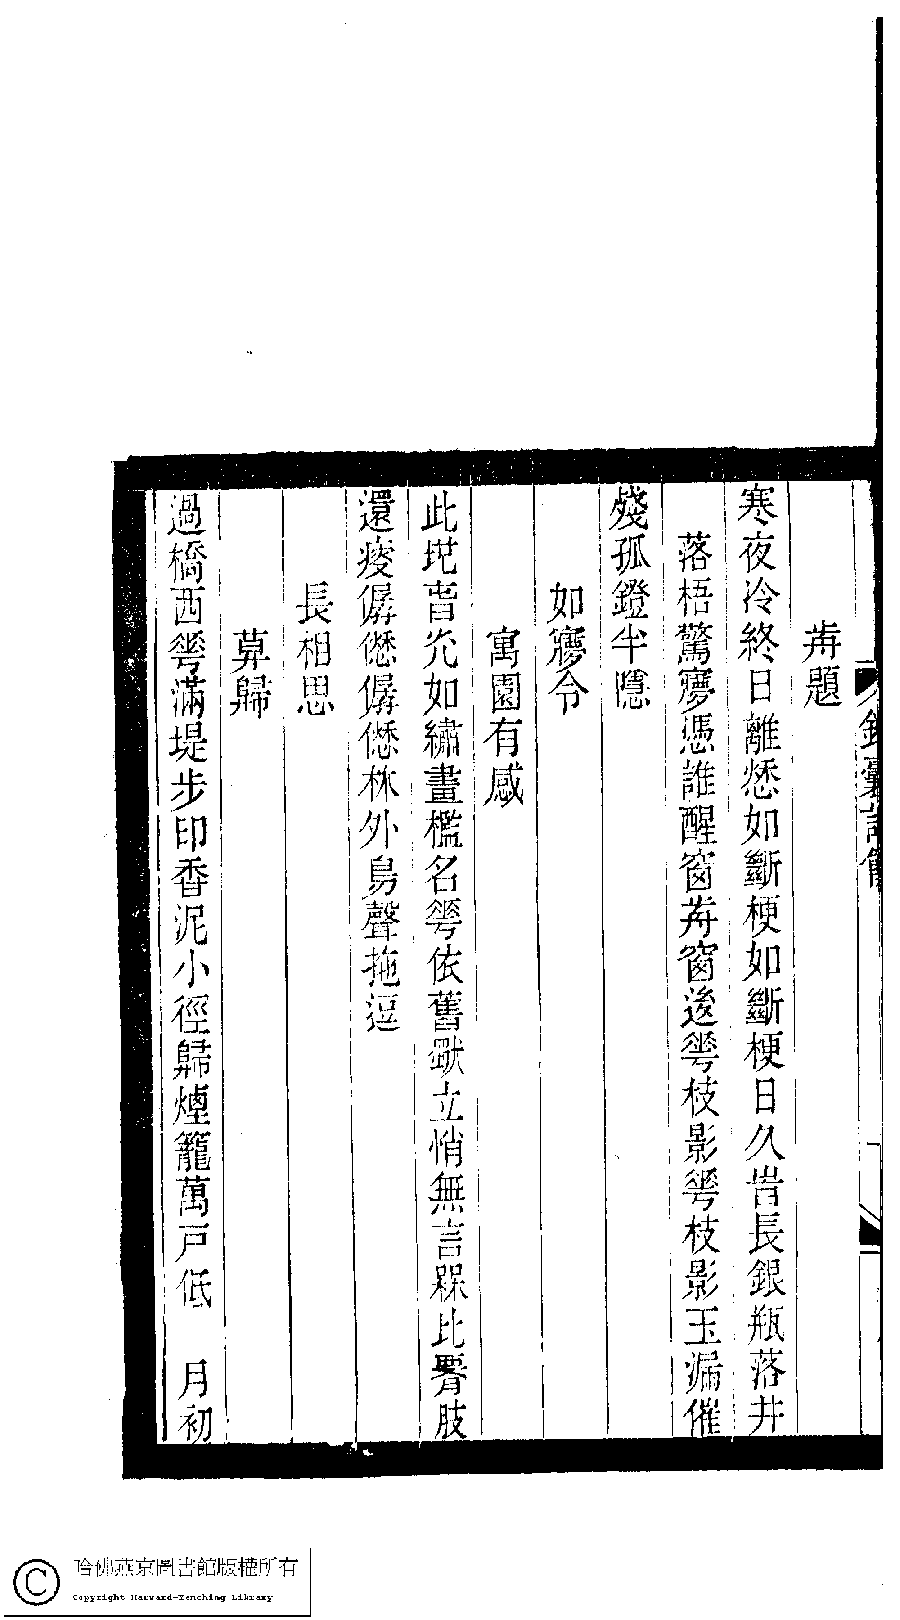 歬題
寒夜冷終日離愁如斷梗如斷梗日久旹長銀瓶落井
落梧驚㝱憑誰醒窗歬窗後㠭枝影㠭枝影玉漏催
殘孤鐙半隱
如㝱令
寓園有感
此地旹光如繡畫檻名㠭依舊獨立悄無言羸比署肢
還瘦僝僽僝僽林外鳥聲拖逗
長相思
莫歸
過橋西㠭滿堤步印香泥小徑歸煙籠萬戸低　月初
銀囊詩餘
哈佛燕京圖書館版權所有
Copyright Harvard-Yenching Library